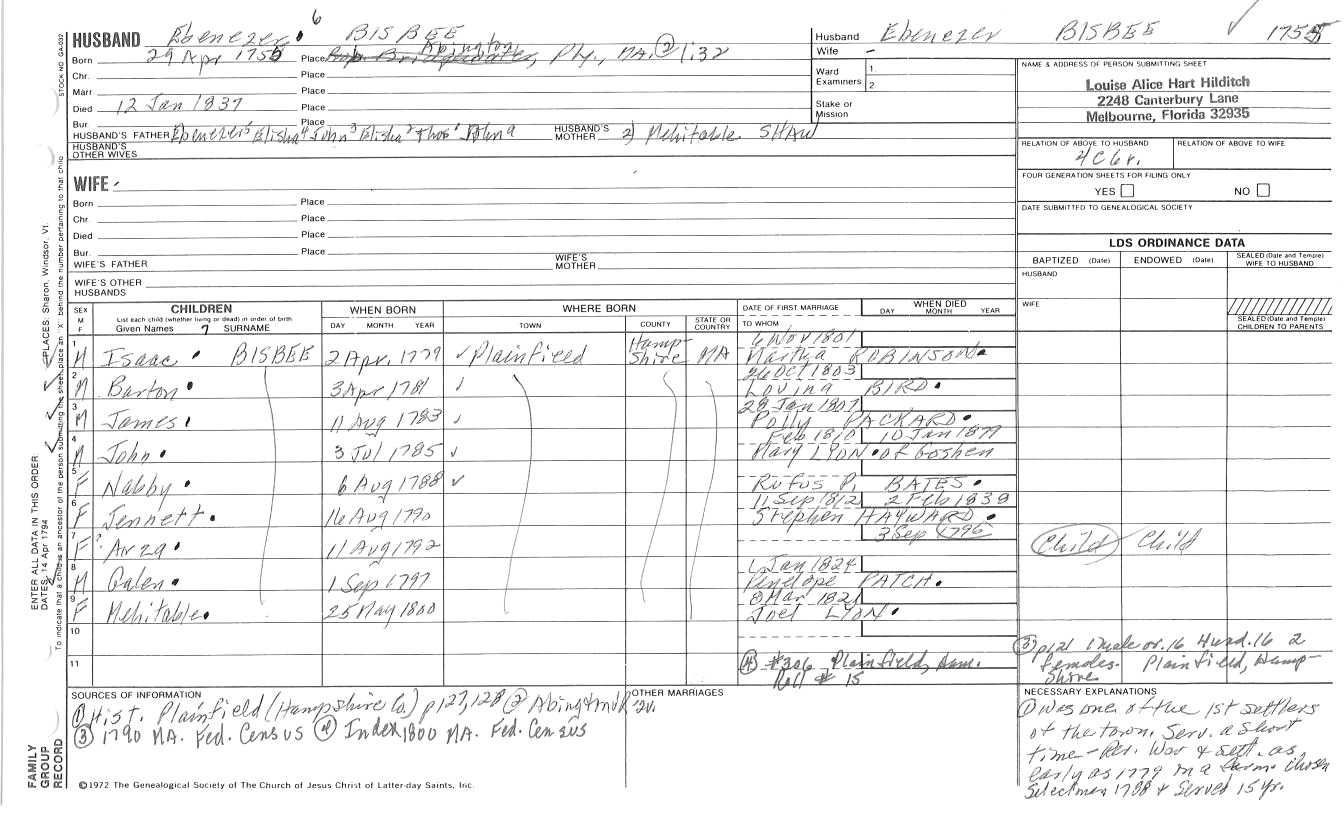 6
HUSBAND Ebenezer BISBEE
Born 29 Apr 1755 Place Abington, Ply., MA. ② 1:32
Chr. Place
Marr. Place
Died 12 Jan 1837 Place
Bur. Place
HUSBAND'S FATHER Ebenezer⁵ Elisha⁴ John³ Elisha² Thos¹ HUSBAND'S MOTHER 2) Mehitable SHAW
HUSBAND'S OTHER WIVES
WIFE
Born Place
Chr. Place
Died Place
Bur. Place
WIFE'S FATHER WIFE'S MOTHER
WIFE'S OTHER HUSBANDS
Husband Ebenezer BISBEE ✓ 1755
Wife –
Ward Examiners 1. 2.
Stake or Mission
NAME & ADDRESS OF PERSON SUBMITTING SHEET
Louise Alice Hart Hilditch
2248 Canterbury Lane
Melbourne, Florida 32935
RELATION OF ABOVE TO HUSBAND RELATION OF ABOVE TO WIFE
4C6r.
FOUR GENERATION SHEETS FOR FILING ONLY
YES NO
DATE SUBMITTED TO GENEALOGICAL SOCIETY
LDS ORDINANCE DATA
BAPTIZED (Date) ENDOWED (Date) SEALED (Date and Temple) WIFE TO HUSBAND
HUSBAND
WIFE
SEALED (Date and Temple) CHILDREN TO PARENTS
SEX M F CHILDREN WHEN BORN WHERE BORN DATE OF FIRST MARRIAGE WHEN DIED
List each child (whether living or dead) in order of birth
Given Names SURNAME DAY MONTH YEAR TOWN COUNTY STATE OR COUNTRY TO WHOM DAY MONTH YEAR
6 Nov 1801
1 M Isaac BISBEE 2 Apr. 1779 ✓ Plainfield Hampshire MA Martha ROBINSON
26 Oct 1803
2 M Barton 3 Apr 1781 ✓ Lovina BIRD
28 Jan 1807
3 M James 11 Aug 1783 ✓ Polly PACKARD
Feb 1810 10 Jan 1877
4 M John 3 Jul 1785 ✓ Mary LYON of Goshen
5 F Nabby 6 Aug 1788 ✓ Rufus P. BATES
11 Sep 1812 2 Feb 1838
6 F Jennett 16 Aug 1790 Stephen HAYWARD
3 Sep 1796
7 F? Arza 11 Aug 1792 Child Child
1 Jan 1824
8 M Galen 1 Sep 1797 Penelope PATCH
8 Mar 1821
9 F Mehitable 25 May 1800 Joel LYON
10
11 ④ #306 Plainfield, Ham.
Roll # 15
③ p121 1 male or. 16 4 und. 16 2
females. Plainfield, Hampshire
SOURCES OF INFORMATION OTHER MARRIAGES
① Hist. Plainfield (Hampshire Co) p127,128 ② Abington VR
③ 1790 MA. Fed. Census ④ Index 1800 MA. Fed. Census
NECESSARY EXPLANATIONS
① Was one of the 1st settlers
of the town. Serv. a short
time – Rev. War & sett. as
early as 1779 on a farm. Chosen
Selectman 1788 & served 15 yr.
©1972 The Genealogical Society of The Church of Jesus Christ of Latter-day Saints, Inc.
STOCK NO. GA-032
FAMILY GROUP RECORD
ENTER ALL DATA IN THIS ORDER
DATES: 14 Apr 1794
PLACES: Sharon, Windsor, Vt.
To indicate that a child is an ancestor of the person submitting the sheet, place an "X" behind the number pertaining to that child